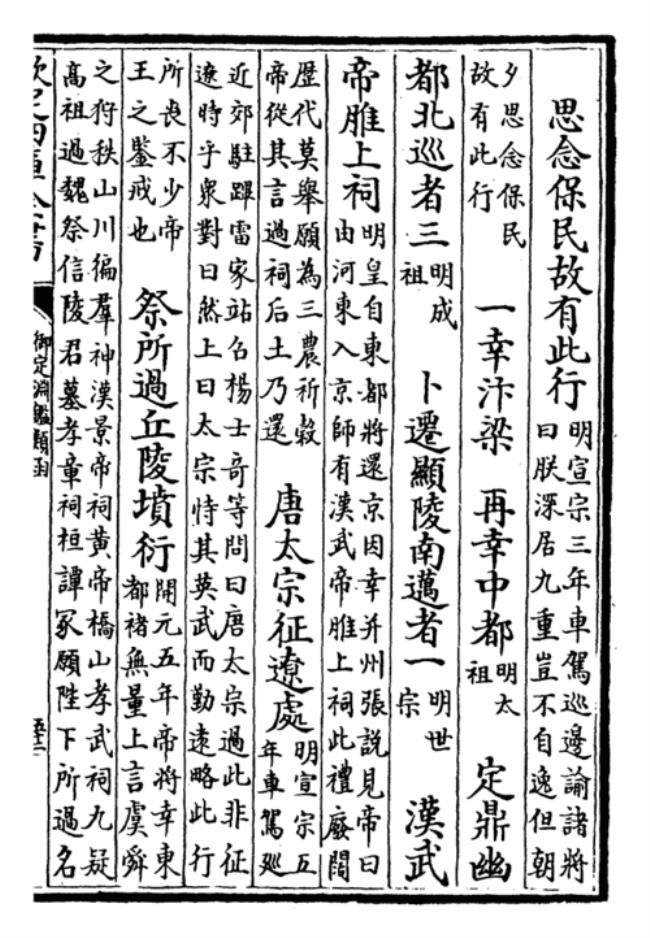 思念保民故有此行明宣宗三年車駕巡邊諭諸將曰朕深居九重豈不自逸但朝
夕思念保民故有此行 一幸汴梁 再幸中都明太祖 定鼎幽
都北巡者三明成祖 卜遷顯陵南邁者一明世宗 漢武
帝脽上祠明皇自東都將還京因幸并州張說見帝曰由河東入京師有漢武帝脽上祠此禮廢闊
歴代莫舉願為三農祈穀帝從其言過祠后土乃還 唐太宗征遼處明宣宗五年車駕廵
近郊駐蹕雷家站召楊士竒等問曰唐太宗過此非征遼時乎衆對曰然上曰太宗恃其英武而勤逺略此行
所喪不少帝王之鑒戒也 祭所過丘陵墳衍開元五年帝將幸東都褚無量上言虞舜
之狩秩山川徧羣神漢景帝祠黄帝橋山孝武祠九疑高祖過魏祭信陵君墓孝章祠桓譚冢願陛下所過名
欽定四庫全書 御定淵鑑類函